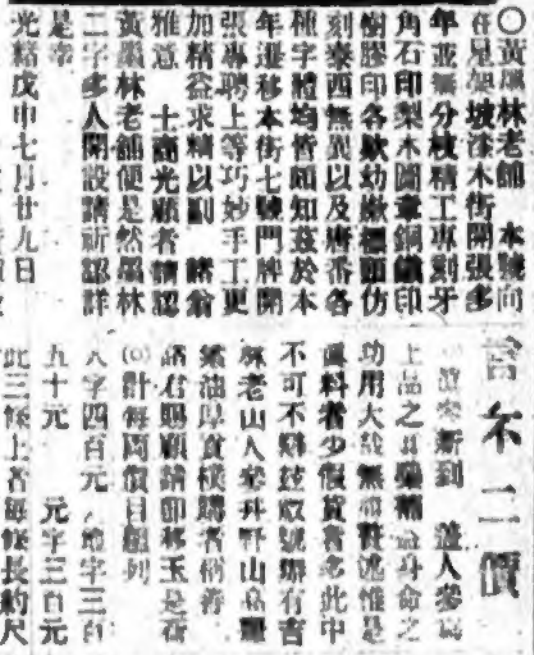 〇黃墨林老舖　本號向
在星架坡漆木街開張多
年並無分枝精工專刻牙
角石印梨木圖章銅鐵印
樹膠印各欵幼嫩標頭仿
刻泰西無異以及唐番各
種字體均皆頗知茲於本
年遷移本街七號門牌開
張專聘上等巧妙手工更
加精益求精以副　諸翁
雅意　士商光顧者請認
黃墨林老舖便是然墨林
二字多人開設請祈認詳
是幸
光緒戊申七月廿九日
言不二價
新到　蓋人參為
上品之　身命之
功用大哉無　惟是
真料者少假貨者多此中
不可不辨茲啟號辦有吉
林老山人參幷野山高麗
油厚食
諸君賜顧請即移玉是荷
計每両價目臚列
八字四百元　地字三百
五十元　元字三百元
此三條上者每條長約尺